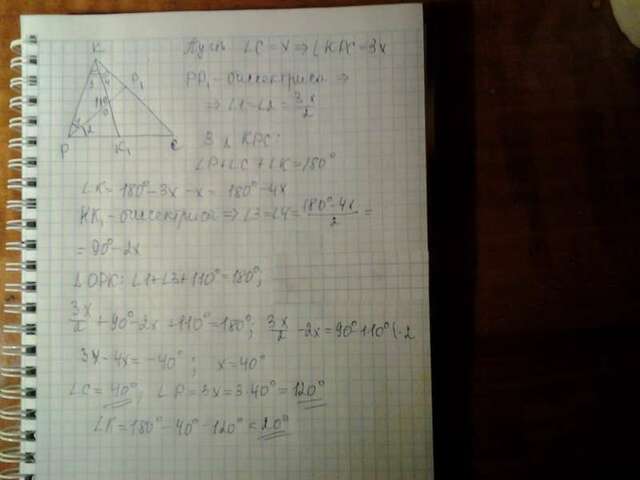 Пусть ∠C = x ⇒ ∠KPC = 3x
PP₁ - биссектриса ⇒
⇒ ∠1 = ∠2 = 3x/2
З Δ KPC:
∠P + ∠C + ∠K = 180°
∠K = 180° - 3x - x = 180° - 4x
KK₁ - биссектриса ⇒ ∠3 = ∠4 = (180° - 4x)/2 =
= 90° - 2x
∠OPK: ∠1 + ∠3 + 110° = 180°;
3x/2 + 90° - 2x + 110° = 180°; 3x/2 - 2x = 90° 110° | · 2
3x - 4x = -40°; x = 40°
∠C = 40°; ∠P = 3x = 3·40° = 120°
∠K = 180° - 40° - 120° = 20°
K
P₁
3
4
110°
O
1
2
P
K₁
C